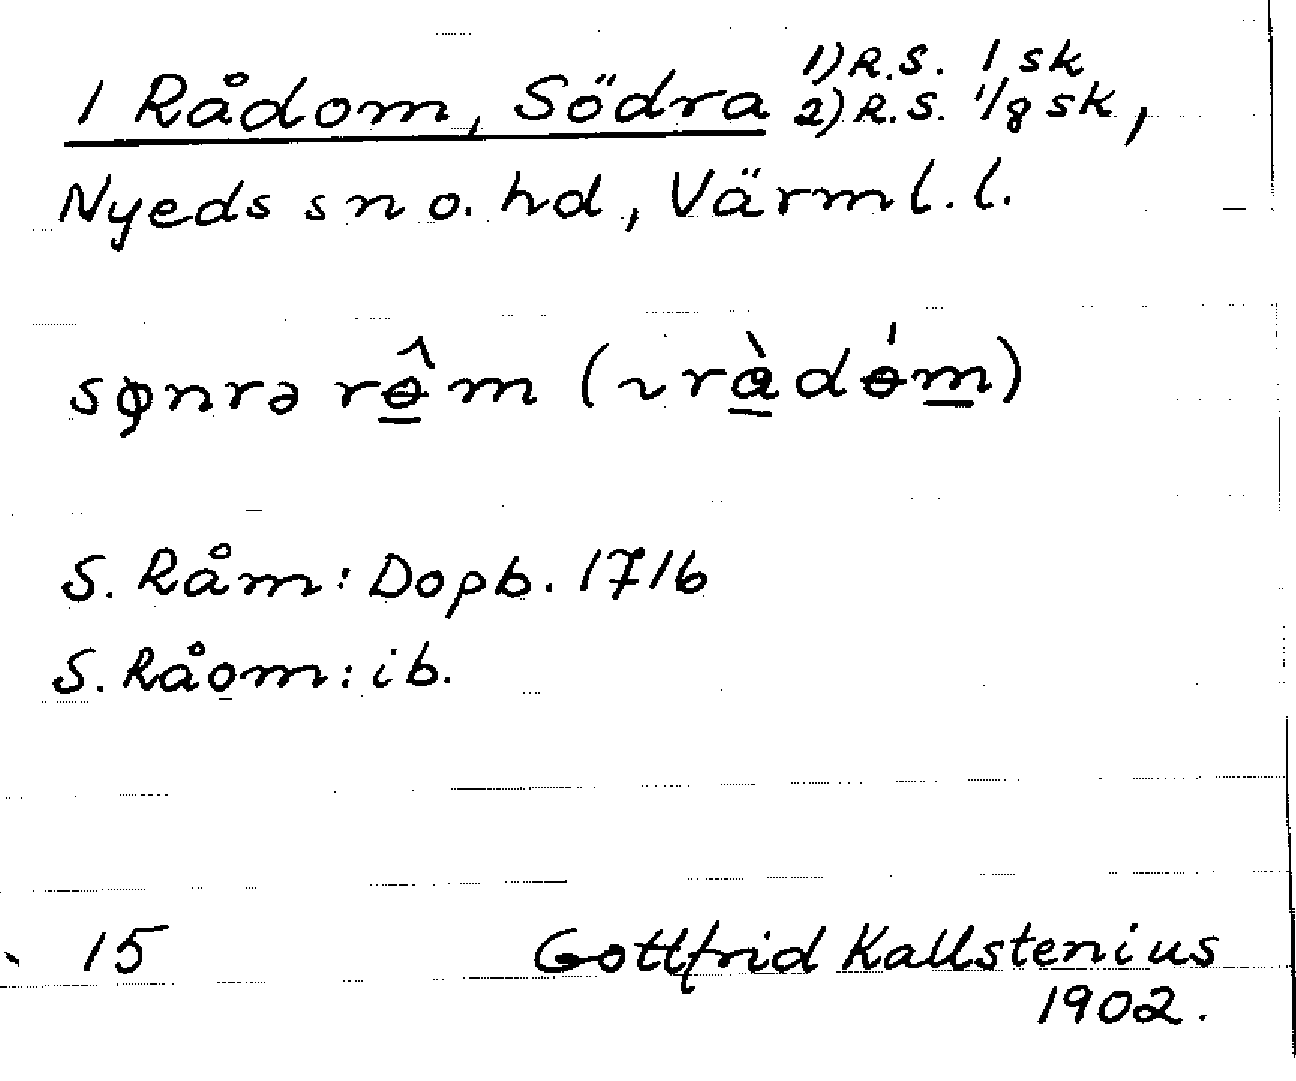 1 Rådom, Södra 1) R.S. 1 sk
2) R.S. 1/8 sk,
Nyeds sn o. hd, Värml. l.
sønrə rɵ̂m (~ ràdɵ́m)
S. Råm: Dopb. 1716
S. Råom: ib.
15 Gottfrid Kallstenius
1902.